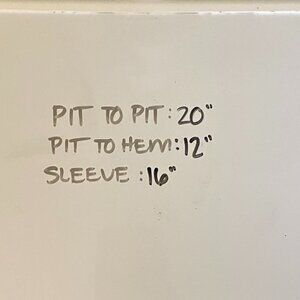 PIT TO PIT: 20"
PIT TO HEM: 12"
SLEEVE : 16"